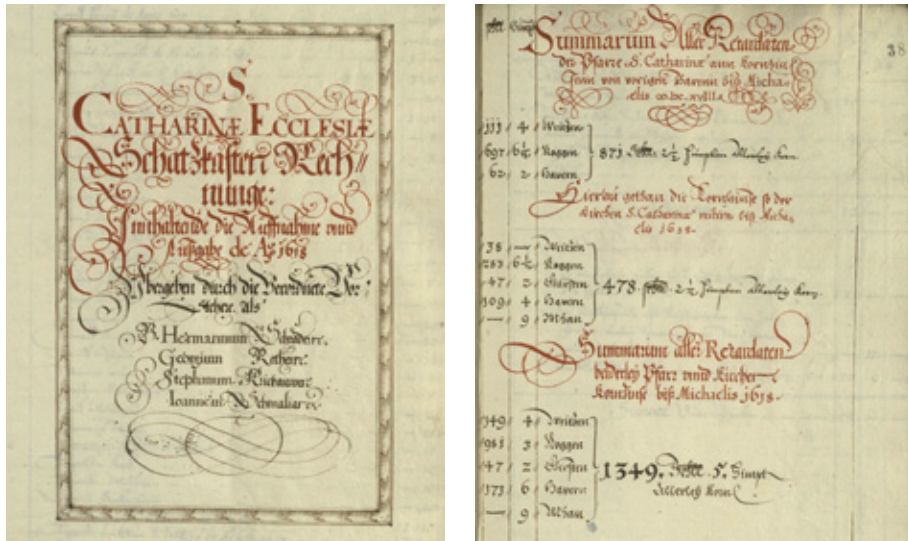 S.
CATHARINÆ ECCLESIÆ
Schatzkasten Rech=
nunge:
Inthaltende die Auffnahme vnnd
Außgabe de Aº 1618
Vbergeben durch die Verordnete Vor=
stehere als
Hermannum
Georgium
Stephanum
Ioannem
38
Summarum Aller Retardaten
der Pfarr S. Catharinæ ann Kornzin
sen von vorigen Jaren biß Micha=
elis
4 Weitzen
697 6½ Roggen
62 2 Havern
873 2½ Himpten allerley Korn.
Hierzu gethan die Kornzinse so der
Kirchen S. Catharinæ biß Micha
elis 1618.
38 — Weitzen
283 6½ Roggen
47 2 Gersten
109 4 Havern
— 9 Mhan
478. 2½ Himpten allerley Korn.
Summarum aller Retardaten
beiderley Pfarr vnnd Kirchen
Kornzinse biß Michaelis 1618.
4 Weitzen
981 3 Roggen
47 2 Gersten
6 Havern
— 9 Mhan
1349. 5. Himpt
Allerley Korn